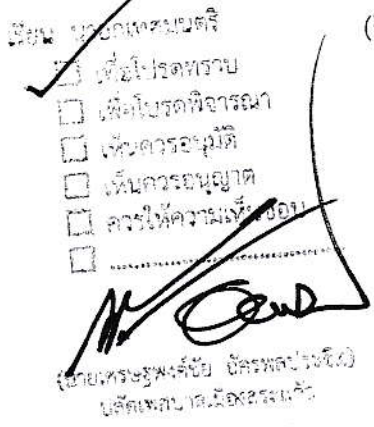 เรียน นายกเทศมนตรี
เพื่อโปรดทราบ
เพื่อโปรดพิจารณา
เห็นควรอนุมัติ
เห็นควรอนุญาต
ควรให้ความเห็นชอบ
(นายเศรษฐพงศ์ชัย
ปลัดเทศบาลเมืองสระแก้ว